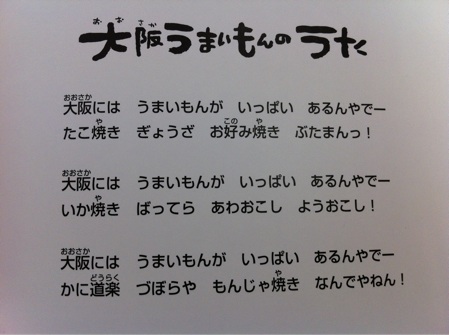 大阪うまいもんのうた
大阪には　うまいもんが　いっぱい　あるんやでー
たこ焼き　ぎょうざ　お好み焼き　ぶたまんっ！
大阪には　うまいもんが　いっぱい　あるんやでー
いか焼き　ばってら　あわおこし　ようおこし！
大阪には　うまいもんが　いっぱい　あるんやでー
かに道楽　づぼらや　もんじゃ焼き　なんでやねん！